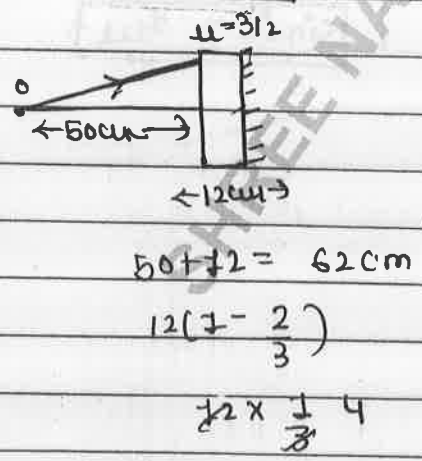 u=3/2
O
←50cm→
←12cm→
50+12= 62cm
12(1- 2/3)
12 x 1/3 4
SHREE NA